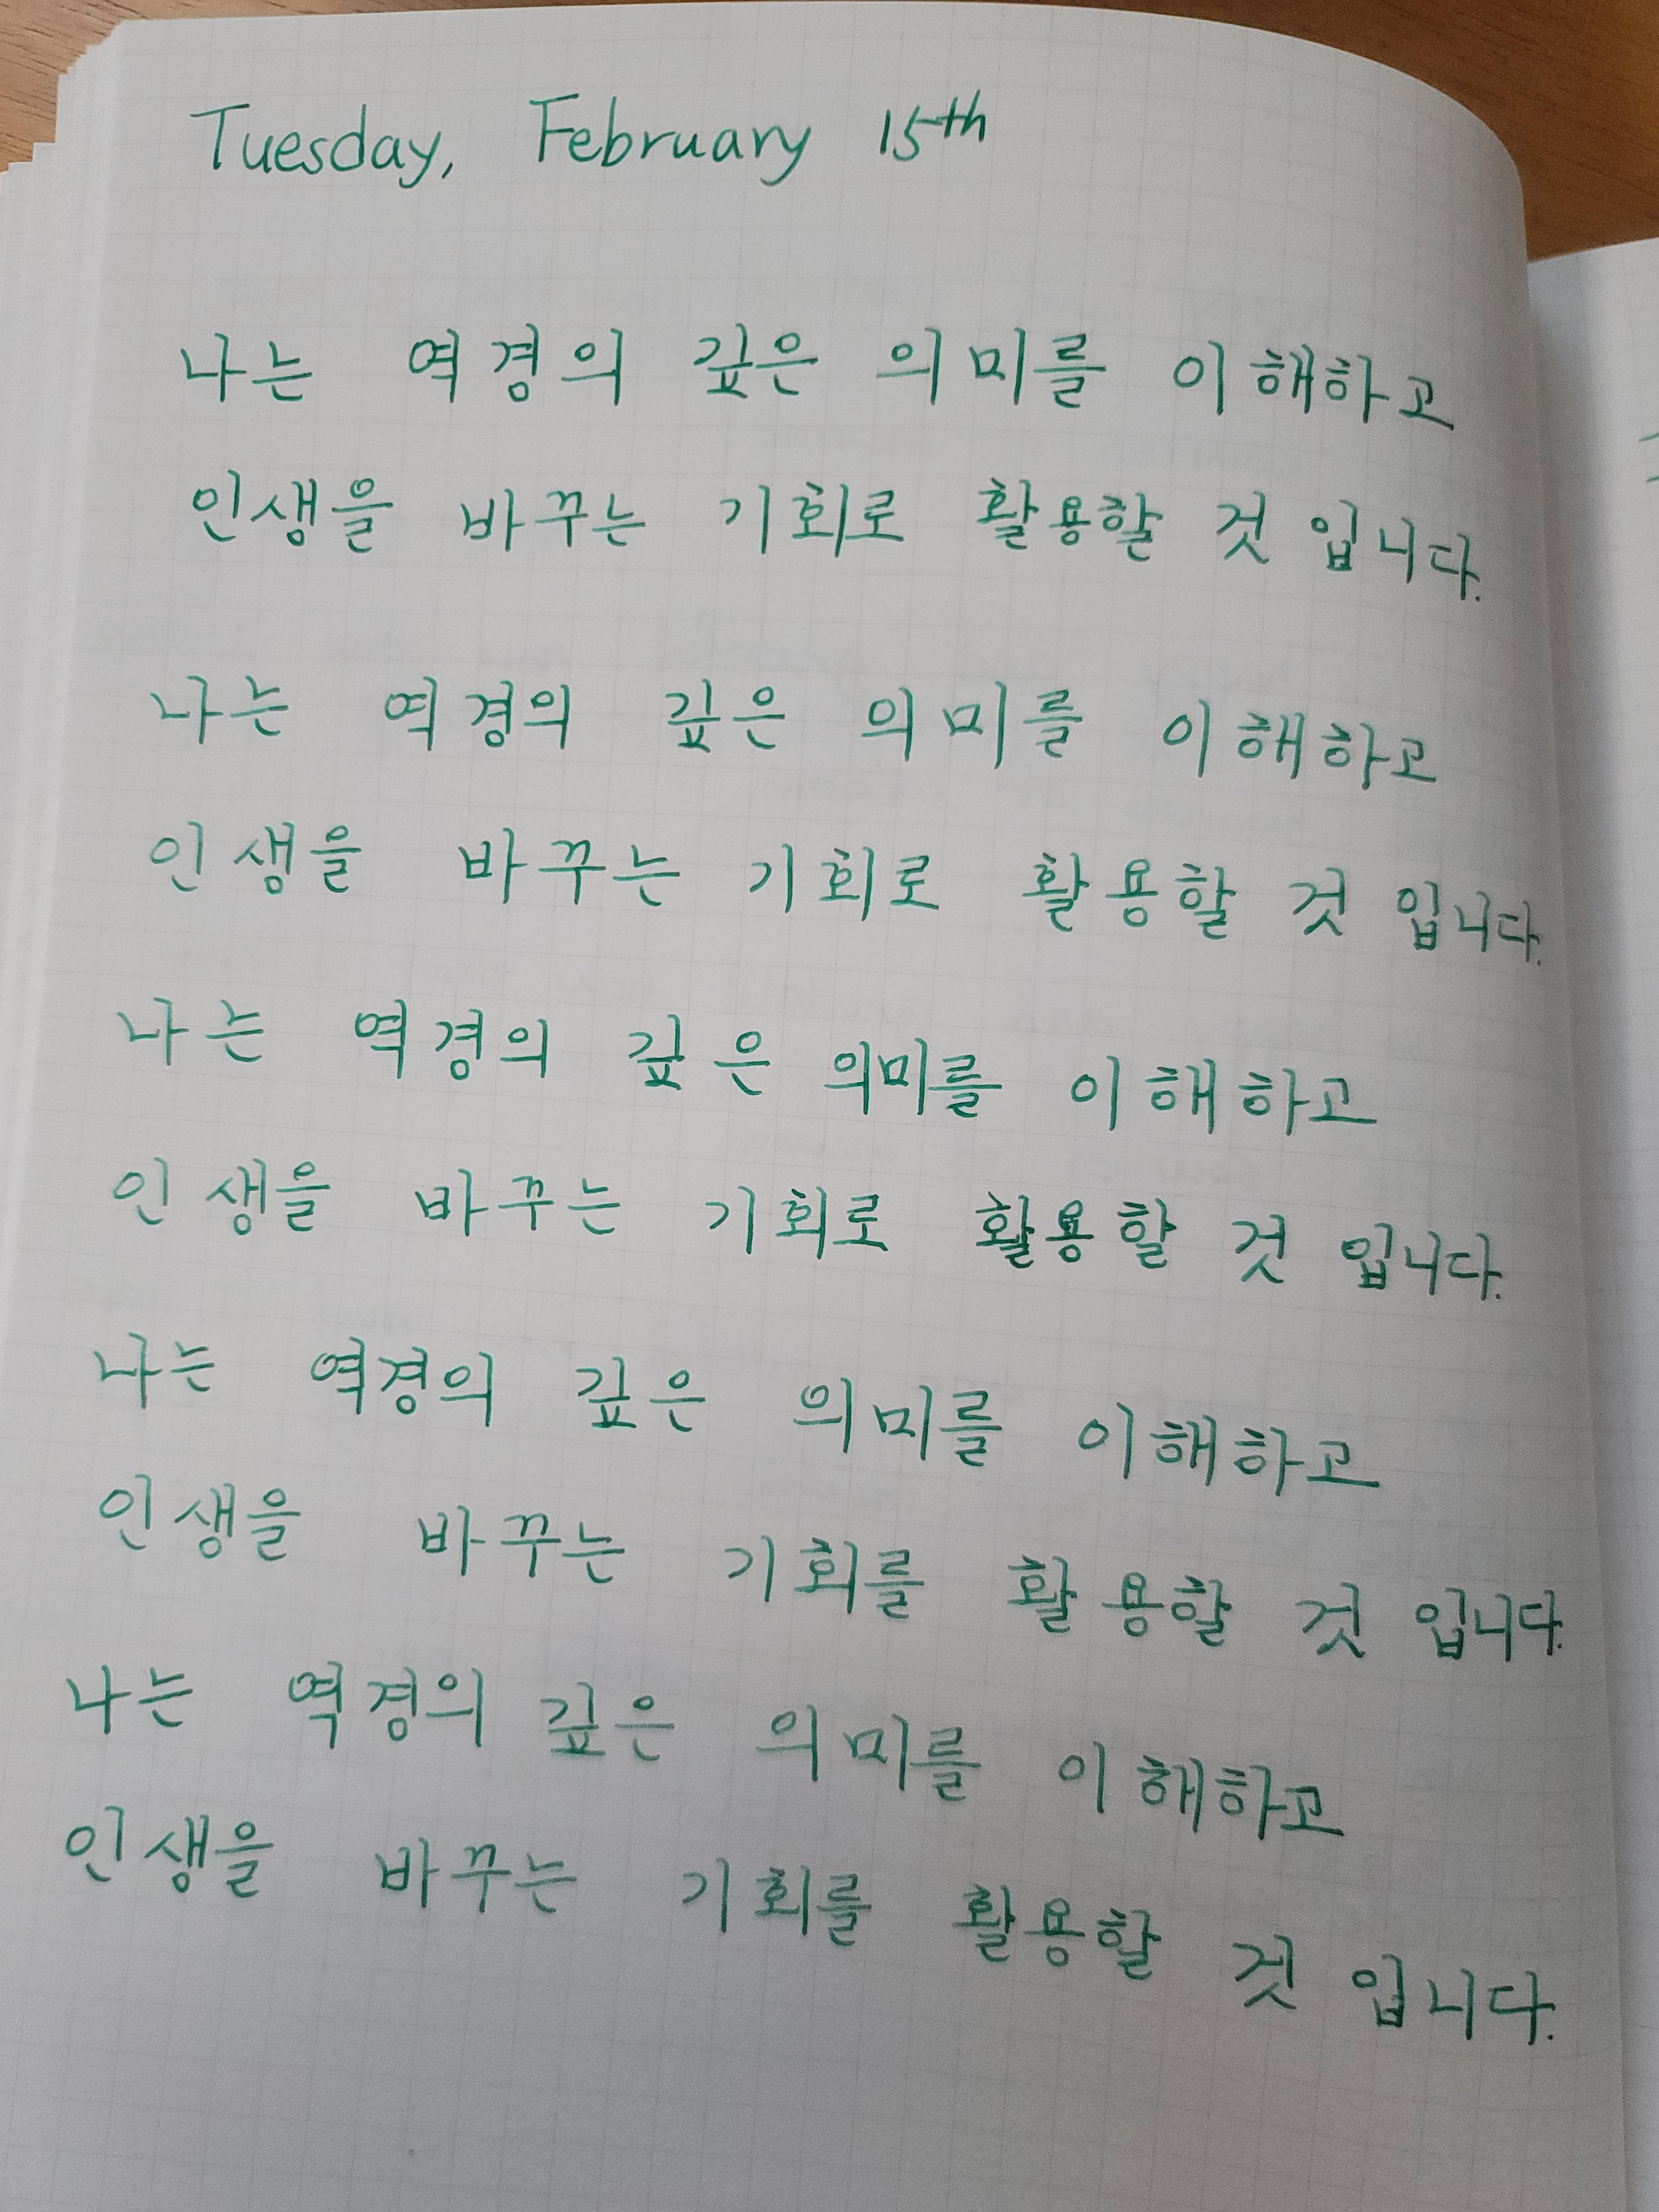 Tuesday, February 15th
나는 역경의 깊은 의미를 이해하고
인생을 바꾸는 기회로 활용할 것 입니다.
나는 역경의 깊은 의미를 이해하고
인생을 바꾸는 기회로 활용할 것 입니다.
나는 역경의 깊은 의미를 이해하고
인생을 바꾸는 기회로 활용할 것 입니다.
나는 역경의 깊은 의미를 이해하고
인생을 바꾸는 기회를 활용할 것 입니다.
나는 역경의 깊은 의미를 이해하고
인생을 바꾸는 기회를 활용할 것 입니다.